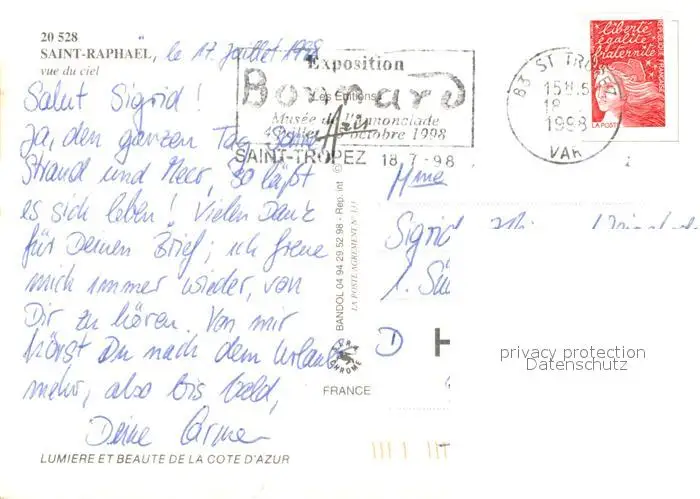 20 528
SAINT-RAPHAEL, le 17. juillet 1998
vue du ciel
Salut Sigrid!
Ja, den ganzen Tag Sonne
Strand und Meer, so läßt
es sich leben! Vielen Dank
für Deinen Brief; ich freue
mich immer wieder, von
Dir zu hören. Von mir
hörst Du nach dem Urlaub
mehr, also bis bald,
Deine Carmen
LUMIERE ET BEAUTE DE LA COTE D'AZUR
Exposition
Bonnard
Les Editions
Musée de l'Annonciade
octobre 1998
SAINT-TROPEZ 18.7-98
83 ST TROPEZ
15H
18
1998
VAR
liberté
égalité
fraternité
REPUBLIQUE FRANÇAISE
LA POSTE
BANDOL 04 94 29 52 98 - Rep. int
LA POSTE AGREMENT N° 131
FRANCE
Mme
Sigrid
D H
privacy protection
Datenschutz